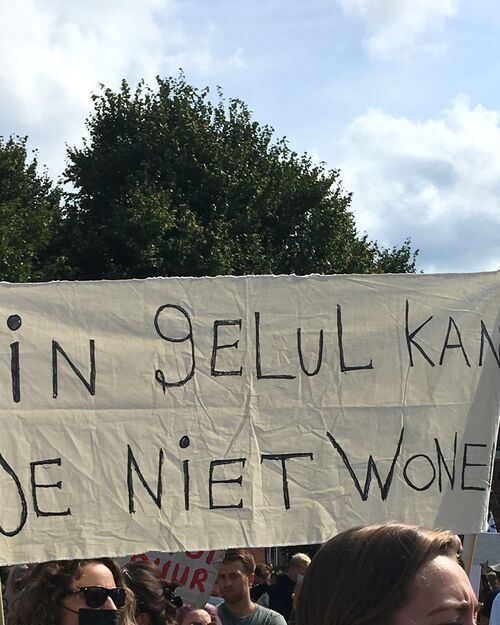 iN gELUL KAN
JE NiET WONE
UUR